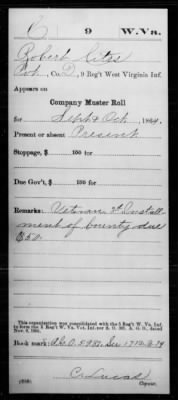 C | 9 | W. Va.
Robert Cites
Co. D, 9 Reg't West Virginia Inf.
Appears on
Company Muster Roll
for Sept & Oct, 1864.
Present or absent Present
Stoppage, $ 100 for
Due Gov't, $ 100 for
Remarks: Veteran 3d Install
ment of bounty due
$50.
This organization was consolidated with the 5 Reg't W. Va. Inf.
to form the 1 Reg't W. Va. Vet. Inf.
Nov. 9, 1864.
Book mark:
(858) Copyist.